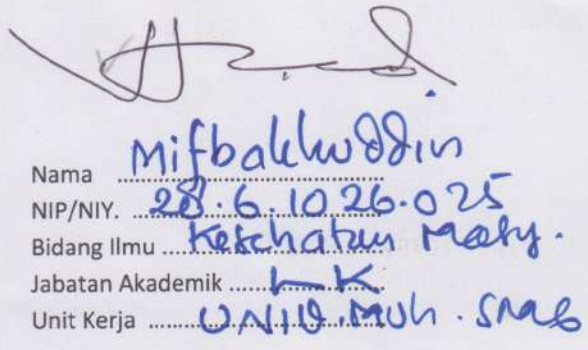 Nama Mifbakhuddin
NIP/NIY. 28.6.1026.025
Bidang Ilmu Kesehatan Masy.
Jabatan Akademik LK
Unit Kerja UNIV.MUH.SMG